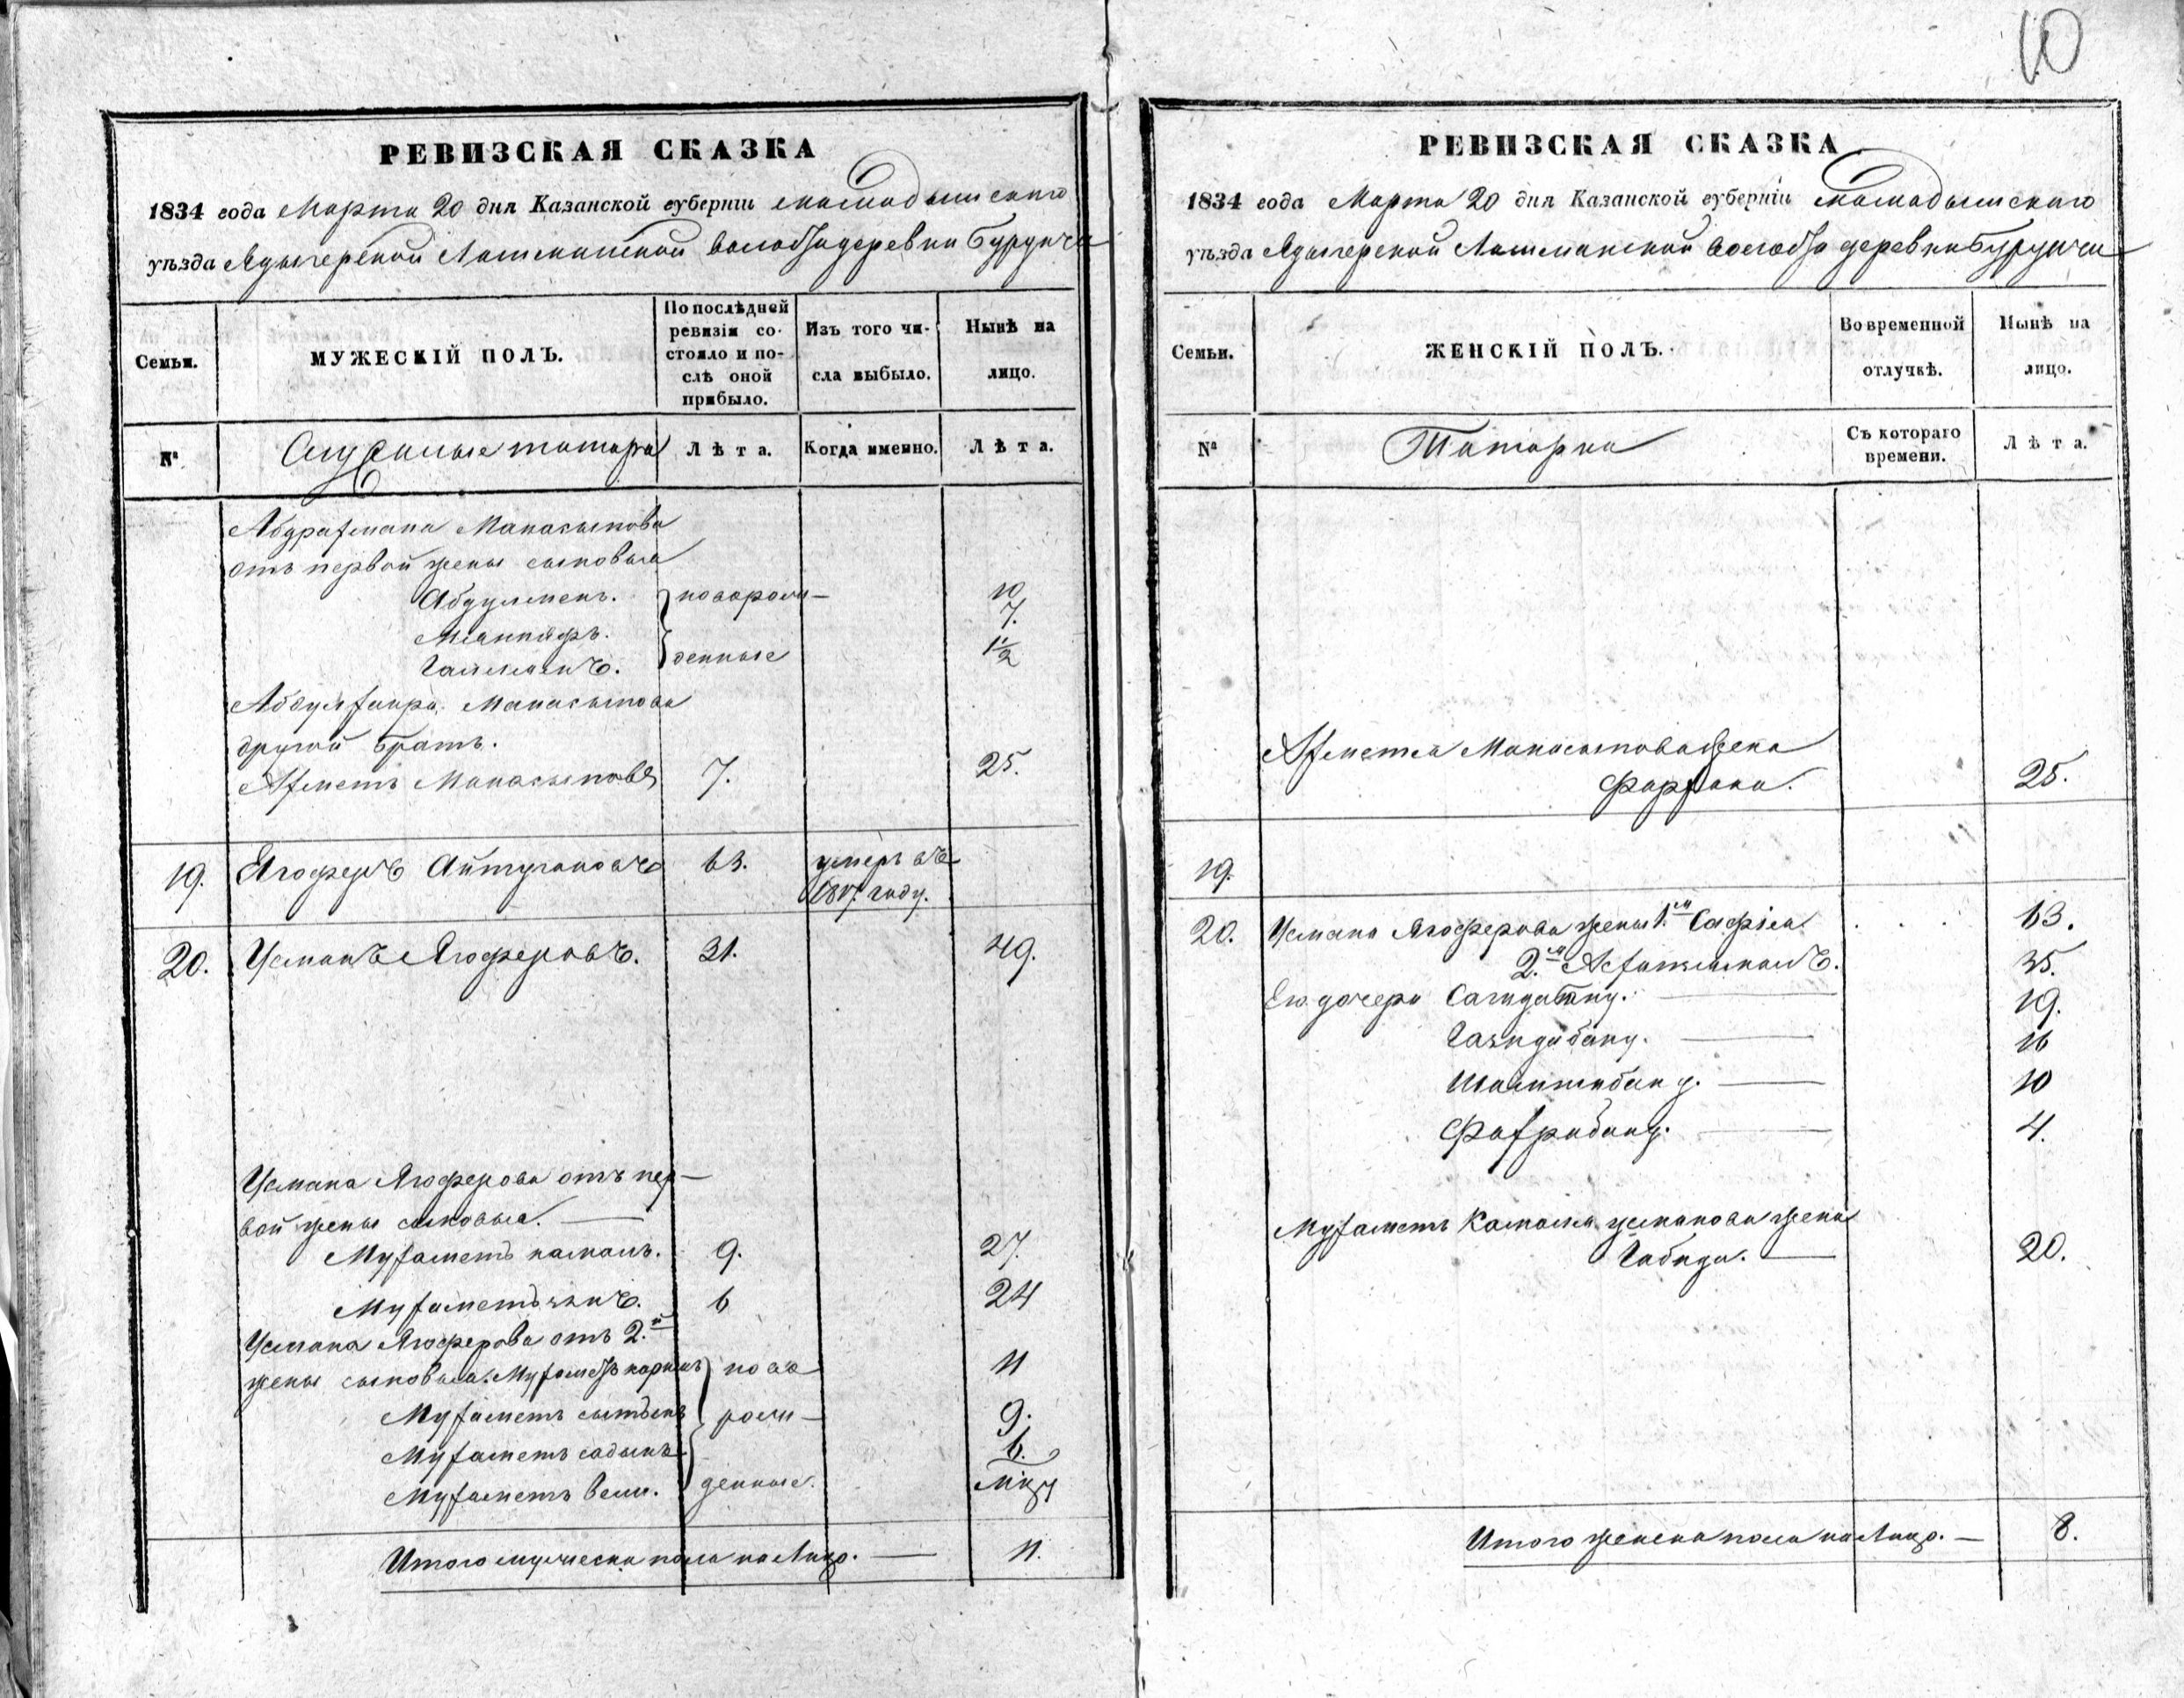 10
РЕВИЗСКАЯ СКАЗКА
1834 года Марта 20 дня Казанской губерніи мамадышскаго
уѣзда Адыгерской Лашманской волости деревни Бурунчи
Семьи.
МУЖЕСКІЙ ПОЛЪ.
По послѣдней
ревизіи со-
стояло и по-
слѣ оной
прибыло.
Изъ того чи-
сла выбыло.
Нынѣ на
лицо.
№
Служилые татара
Лѣта.
Когда именно.
Лѣта.
Абдрахмана Манасыпова
отъ первой жены сыновья
Абдулменъ. новорож- 10
7.
денные 1½
Манасыпова
другой братъ.
Ахметъ Манасыповъ 7. 25.
19. Ягоферъ Айтугановъ 63. умеръ въ
году.
20. Усманъ Ягоферовъ. 31. 49.
Усмана Ягоферова отъ пер-
вой жены сыновья.
Мухаметъ камалъ. 9. 27.
6 24
Усмана Ягоферова отъ 2.й
жены сыновья. Мухаметъ каримъ ново 11
Мухаметъ рож- 9.
Мухаметъ садыкъ 6.
Мухаметъ вели. денные.
Итого мужеска пола на Лицо. 11.
РЕВИЗСКАЯ СКАЗКА
1834 года Марта 20 дня Казанской губерніи мамадышскаго
уѣзда Адыгерской Лашманской волости деревни Бурунчи
Семьи.
ЖЕНСКІЙ ПОЛЪ.
Во временной
отлучкѣ.
Нынѣ на
лицо.
№
Татарки
Съ котораго
времени.
Лѣта.
Ахметя Манасыпова жена
25.
19.
20. Усмана Ягоферова жены 1.я Сафія 63.
2.я 35.
Его дочери Сагидабану. 19.
Газидабану. 16
Шамшибану. 10
Фахрибану. 4.
Мухаметъ Камаля усманова жена
Габида. 20.
Итого женска пола на Лицо. 8.